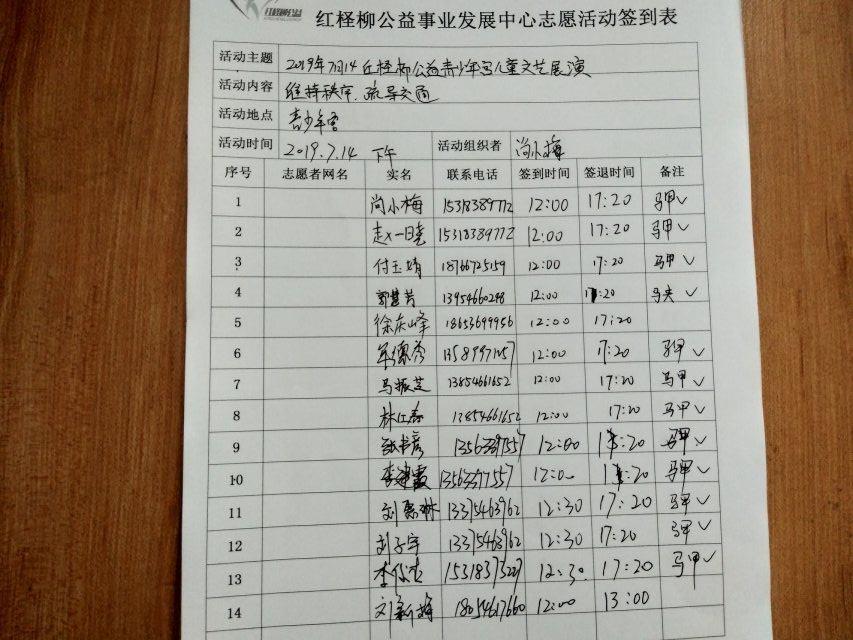 红柽柳公益
红柽柳公益事业发展中心志愿活动签到表
活动主题 2019年7月14 红柽柳公益青少年宫儿童文艺展演
活动内容 维持秩序、疏导交通
活动地点 青少年宫
活动时间 2019.7.14 下午 活动组织者 尚小梅
序号 志愿者网名 实名 联系电话 签到时间 签退时间 备注
1 尚小梅 15318389772 12:00 17:20 马甲✓
2 赵一日 15318389772 12:00 17:20 马甲✓
3 付玉靖 18766725159 12:00 17:20 马甲✓
4 13954660248 12:00 17:20 马夹✓
5 徐庆峰 18653699956 12:00 17:20
6 德秀 12:00 17:20 马甲✓
7 马振芝 13854661652 12:00 17:20 马甲✓
8 林 13854661652 12:00 17:20 马甲✓
9 12:00 17:20 马甲✓
10 李 12:00 17:20 马甲✓
11 刘 琳 13375463962 12:30 17:20 马甲✓
12 刘子宇 13375463962 12:30 17:20 马甲✓
13 李 12:30 17:20 马甲✓
14 刘新梅 18054617660 12:00 13:00